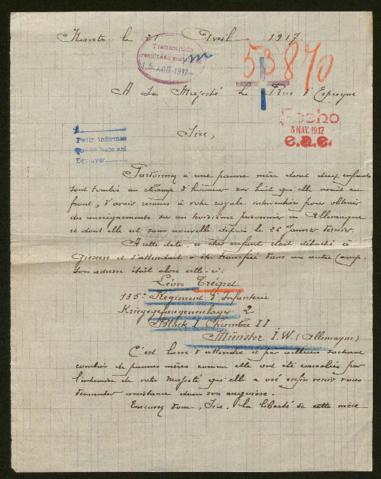 le 21 Avril 1917
Transmitido
53870
A Sa Majesté Le Roi d'Espagne
Fecho
3 MAY. 1917
e.a.e.
Sire,
Pardonnez à une pauvre mère dont deux enfants
sont tombés au champ d'honneur sur huit qu'elle avait au
front, d'avoir recours à votre royale intervention pour obtenir
des renseignements sur un troisième prisonnier en Allemagne
et dont elle est sans nouvelle depuis le 26 Janvier dernier.
A cette date, ce cher enfant était détaché à
Giessen et s'attendait à être transféré dans un autre camp.
Son adresse était alors celle-ci:
Léon Treguet
135e Régiment d'Infanterie
Kriegsgefangenenlager 2
Block I Chambre II
Münster I.W. (Allemagne)
C'est lasse d'attendre et par ailleurs sachant
combien de pauvres mères comme elle ont été consolées par
l'entremise de votre Majesté qu'elle a osé enfin venir vous
demander assistance dans son angoisse.
Excusez donc, Sire, la liberté de cette mère